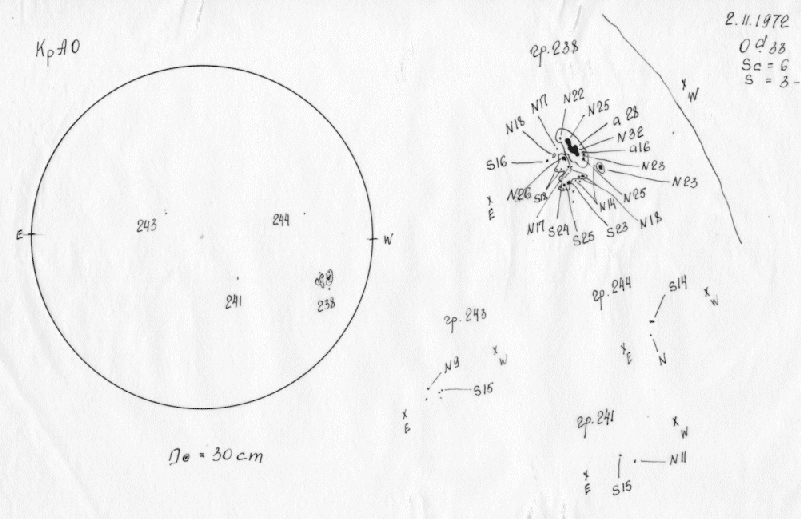 КрАО
2.11.1972
0 d 33
Sc = 6
S = 3-
гр. 238
W
N17
N22
N25
a 28
N18
N32
a16
S16
N23
N23
N26
N25
E
N14
N18
N17
S24
S25
S23
E
W
243
244
241
238
гр. 244
S14
W
E
N
гр. 243
N9
W
S15
E
D⊙ = 30 cm
гр. 241
W
E
S15
N11